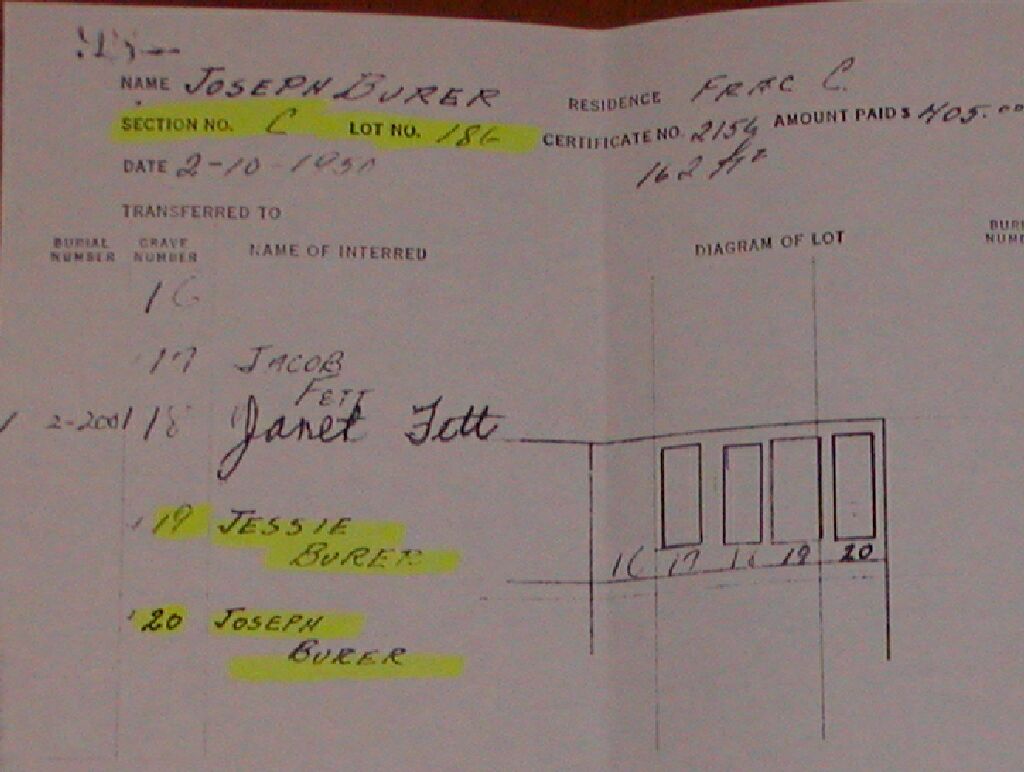 NAME JOSEPH BURER RESIDENCE FRAC C.
SECTION NO. C LOT NO. 186 CERTIFICATE NO. 2154 AMOUNT PAID $ 405.00
DATE 2-10-1930 162 ft²
TRANSFERRED TO
BURIAL NUMBER GRAVE NUMBER NAME OF INTERRED DIAGRAM OF LOT
16
17 JACOB
FETT
2-2001 18 Janet Fett
19 JESSIE
BURER
16 17 18 19 20
20 JOSEPH
BURER